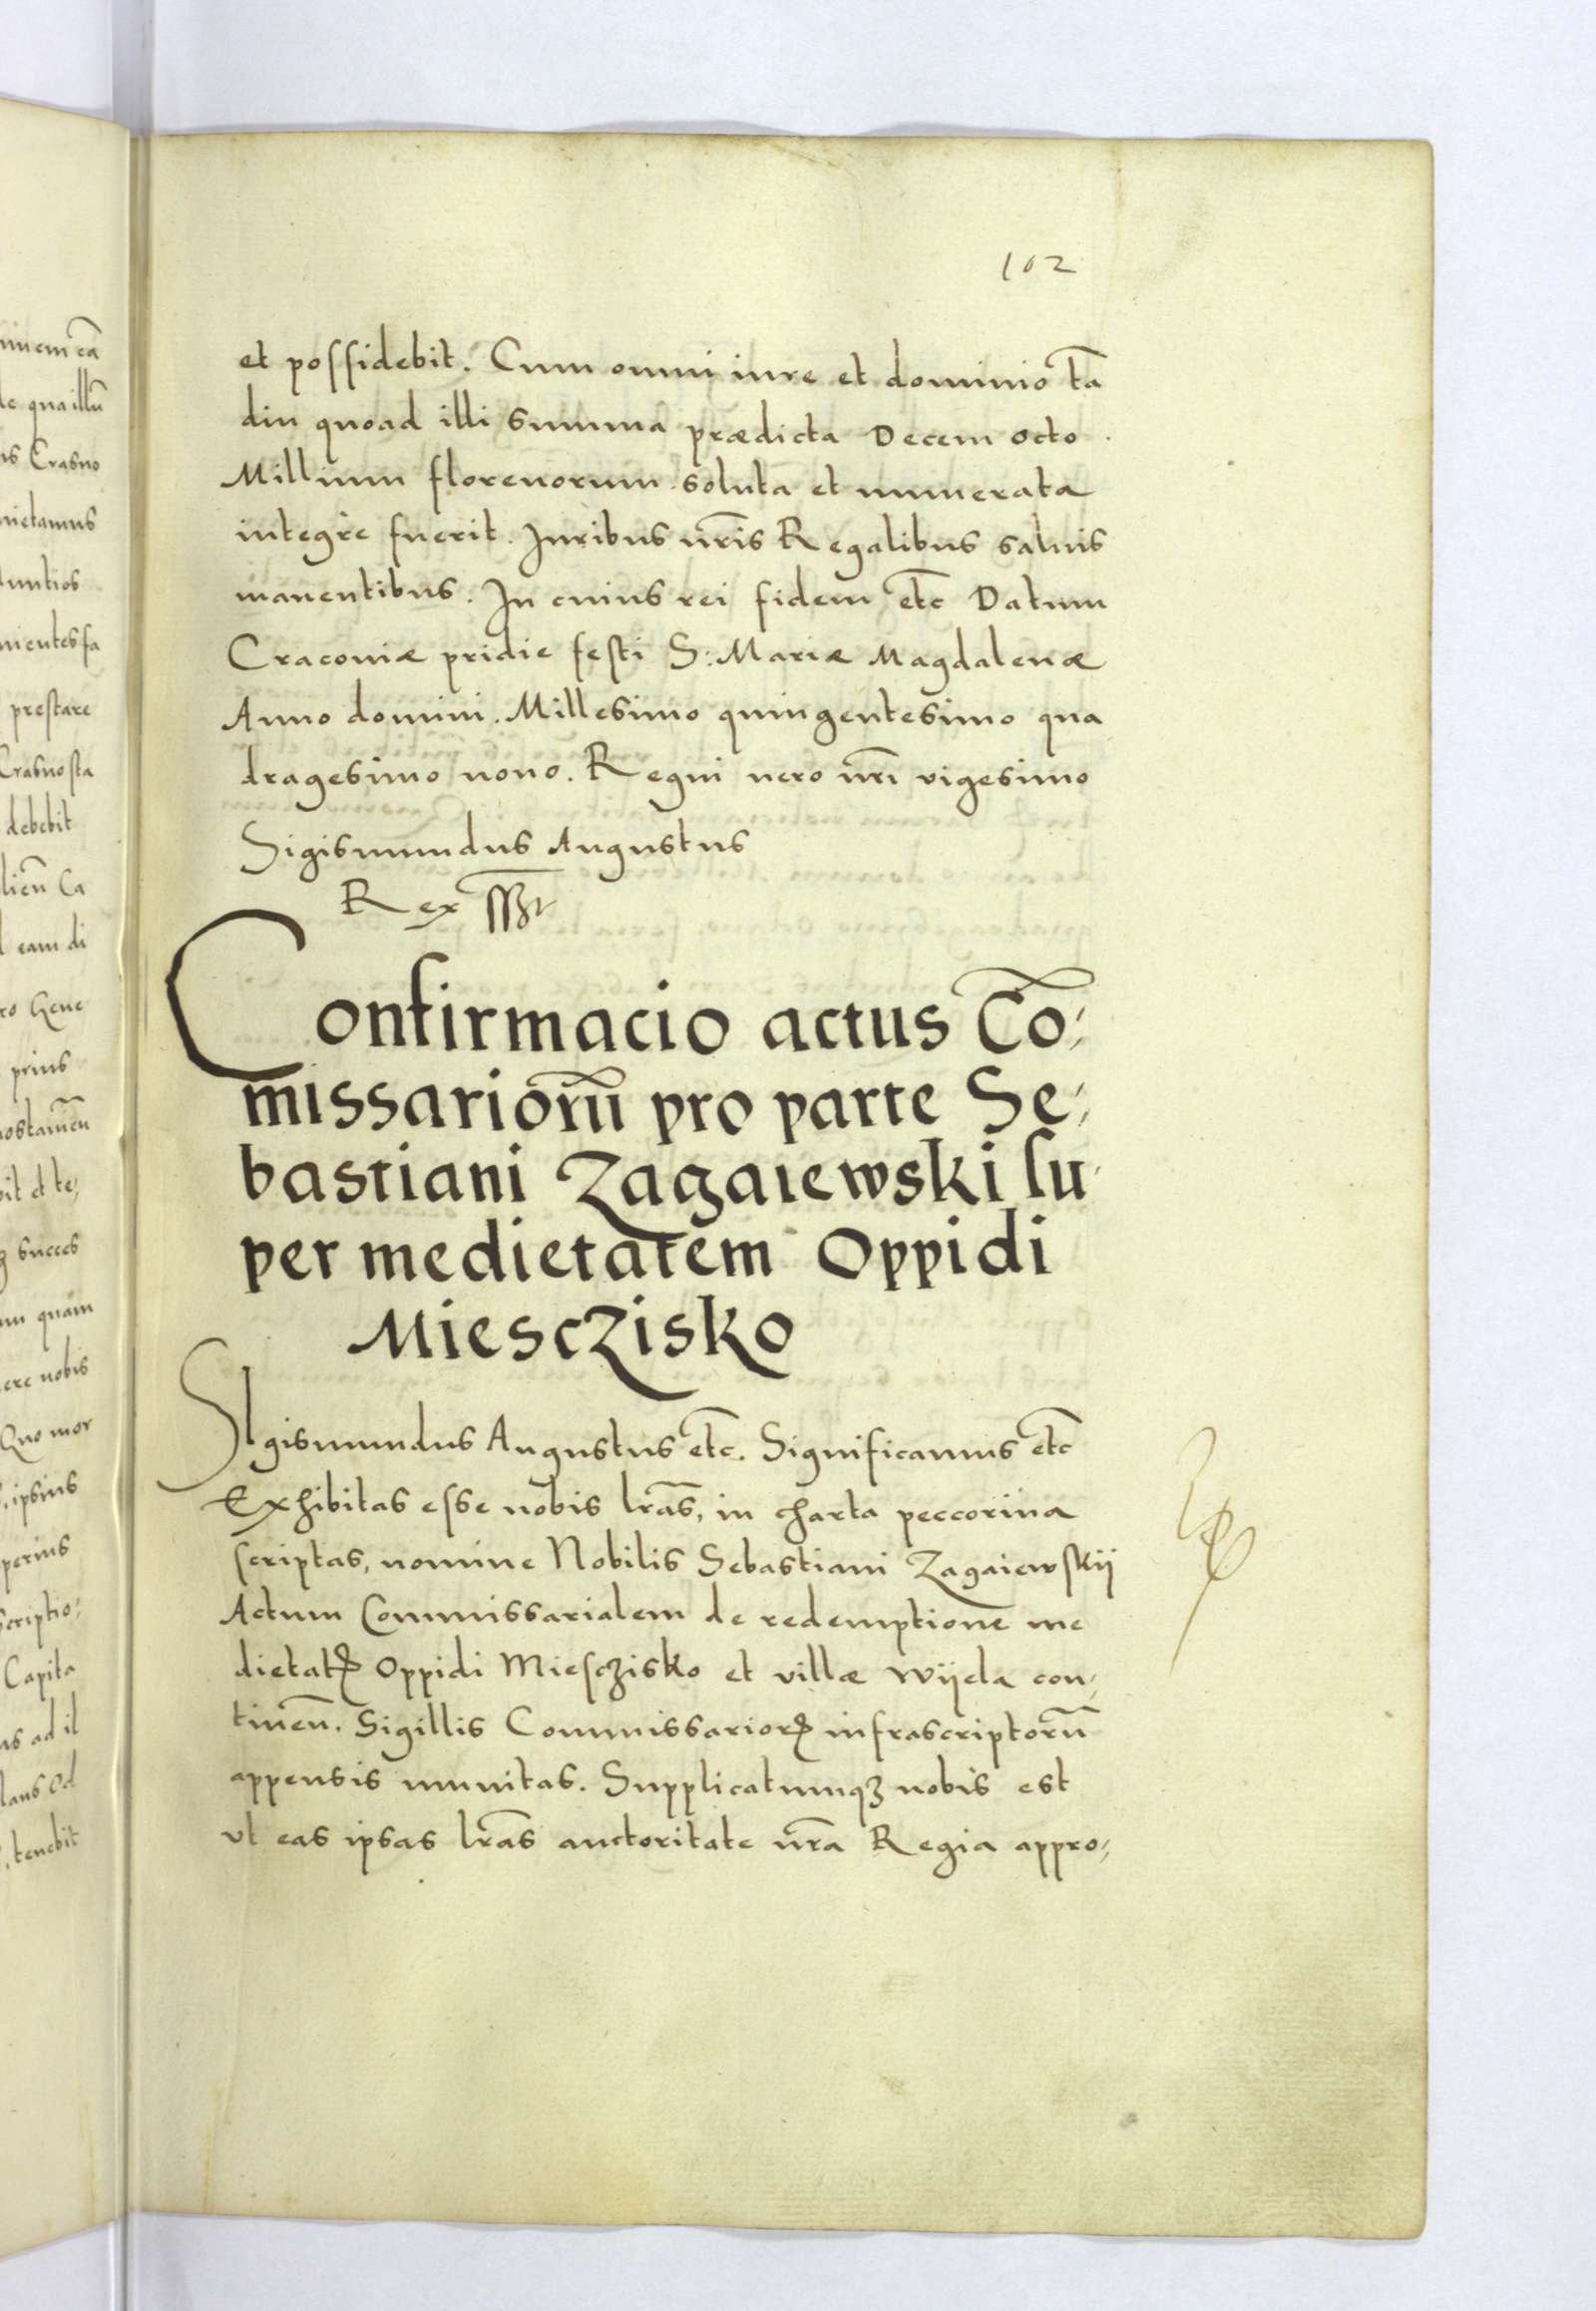 102
et possidebit. Cum omni iure et dominio tā
diu quoad illi summa prædicta Decem octo
Millium florenorum soluta et numerata
integre fuerit. Juribus nr̄is Regalibus saluis
manentibus. In cuius rei fidem etc̄ Datum
Cracoviæ pridie festi S: Mariæ Magdalenæ
Anno domini. Millesimo quingentesimo qua
dragesimo nono. Regni uero nr̄i vigesimo
Sigismundus Augustus
Rex
Confirmacio actus Cō,
missariorū pro parte Se,
bastiani Zagaiewski su
per medietatem Oppidi
Miesczisko
SIgismundus Augustus etc̄. Significamus etc̄
Exhibitas esse nobis lrās, in charta peccorina
scriptas, nomine Nobilis Sebastiani Zagaiewskij
Actum Commissarialem de redemptione me
dietatꝭ Oppidi Miesczisko et villæ Wijela con,
tineñ. Sigillis Commissarioꝝ infrascriptorū
appensis munitas. Supplicatumqꝫ nobis est
vt eas ipsas lrās auctoritate nr̄a Regia appro,
minem eā
de qua illū
Crasno
nuntios
prestare
Crasnosta
debebit
Ca
eam di
Gene
prius
et te,
succes
quam
nobis
Quo mor
ipsius
scriptio,
Capita
ad il
Od
tenebit